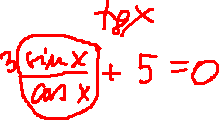 tgx
3 sin x / cos x + 5 = 0